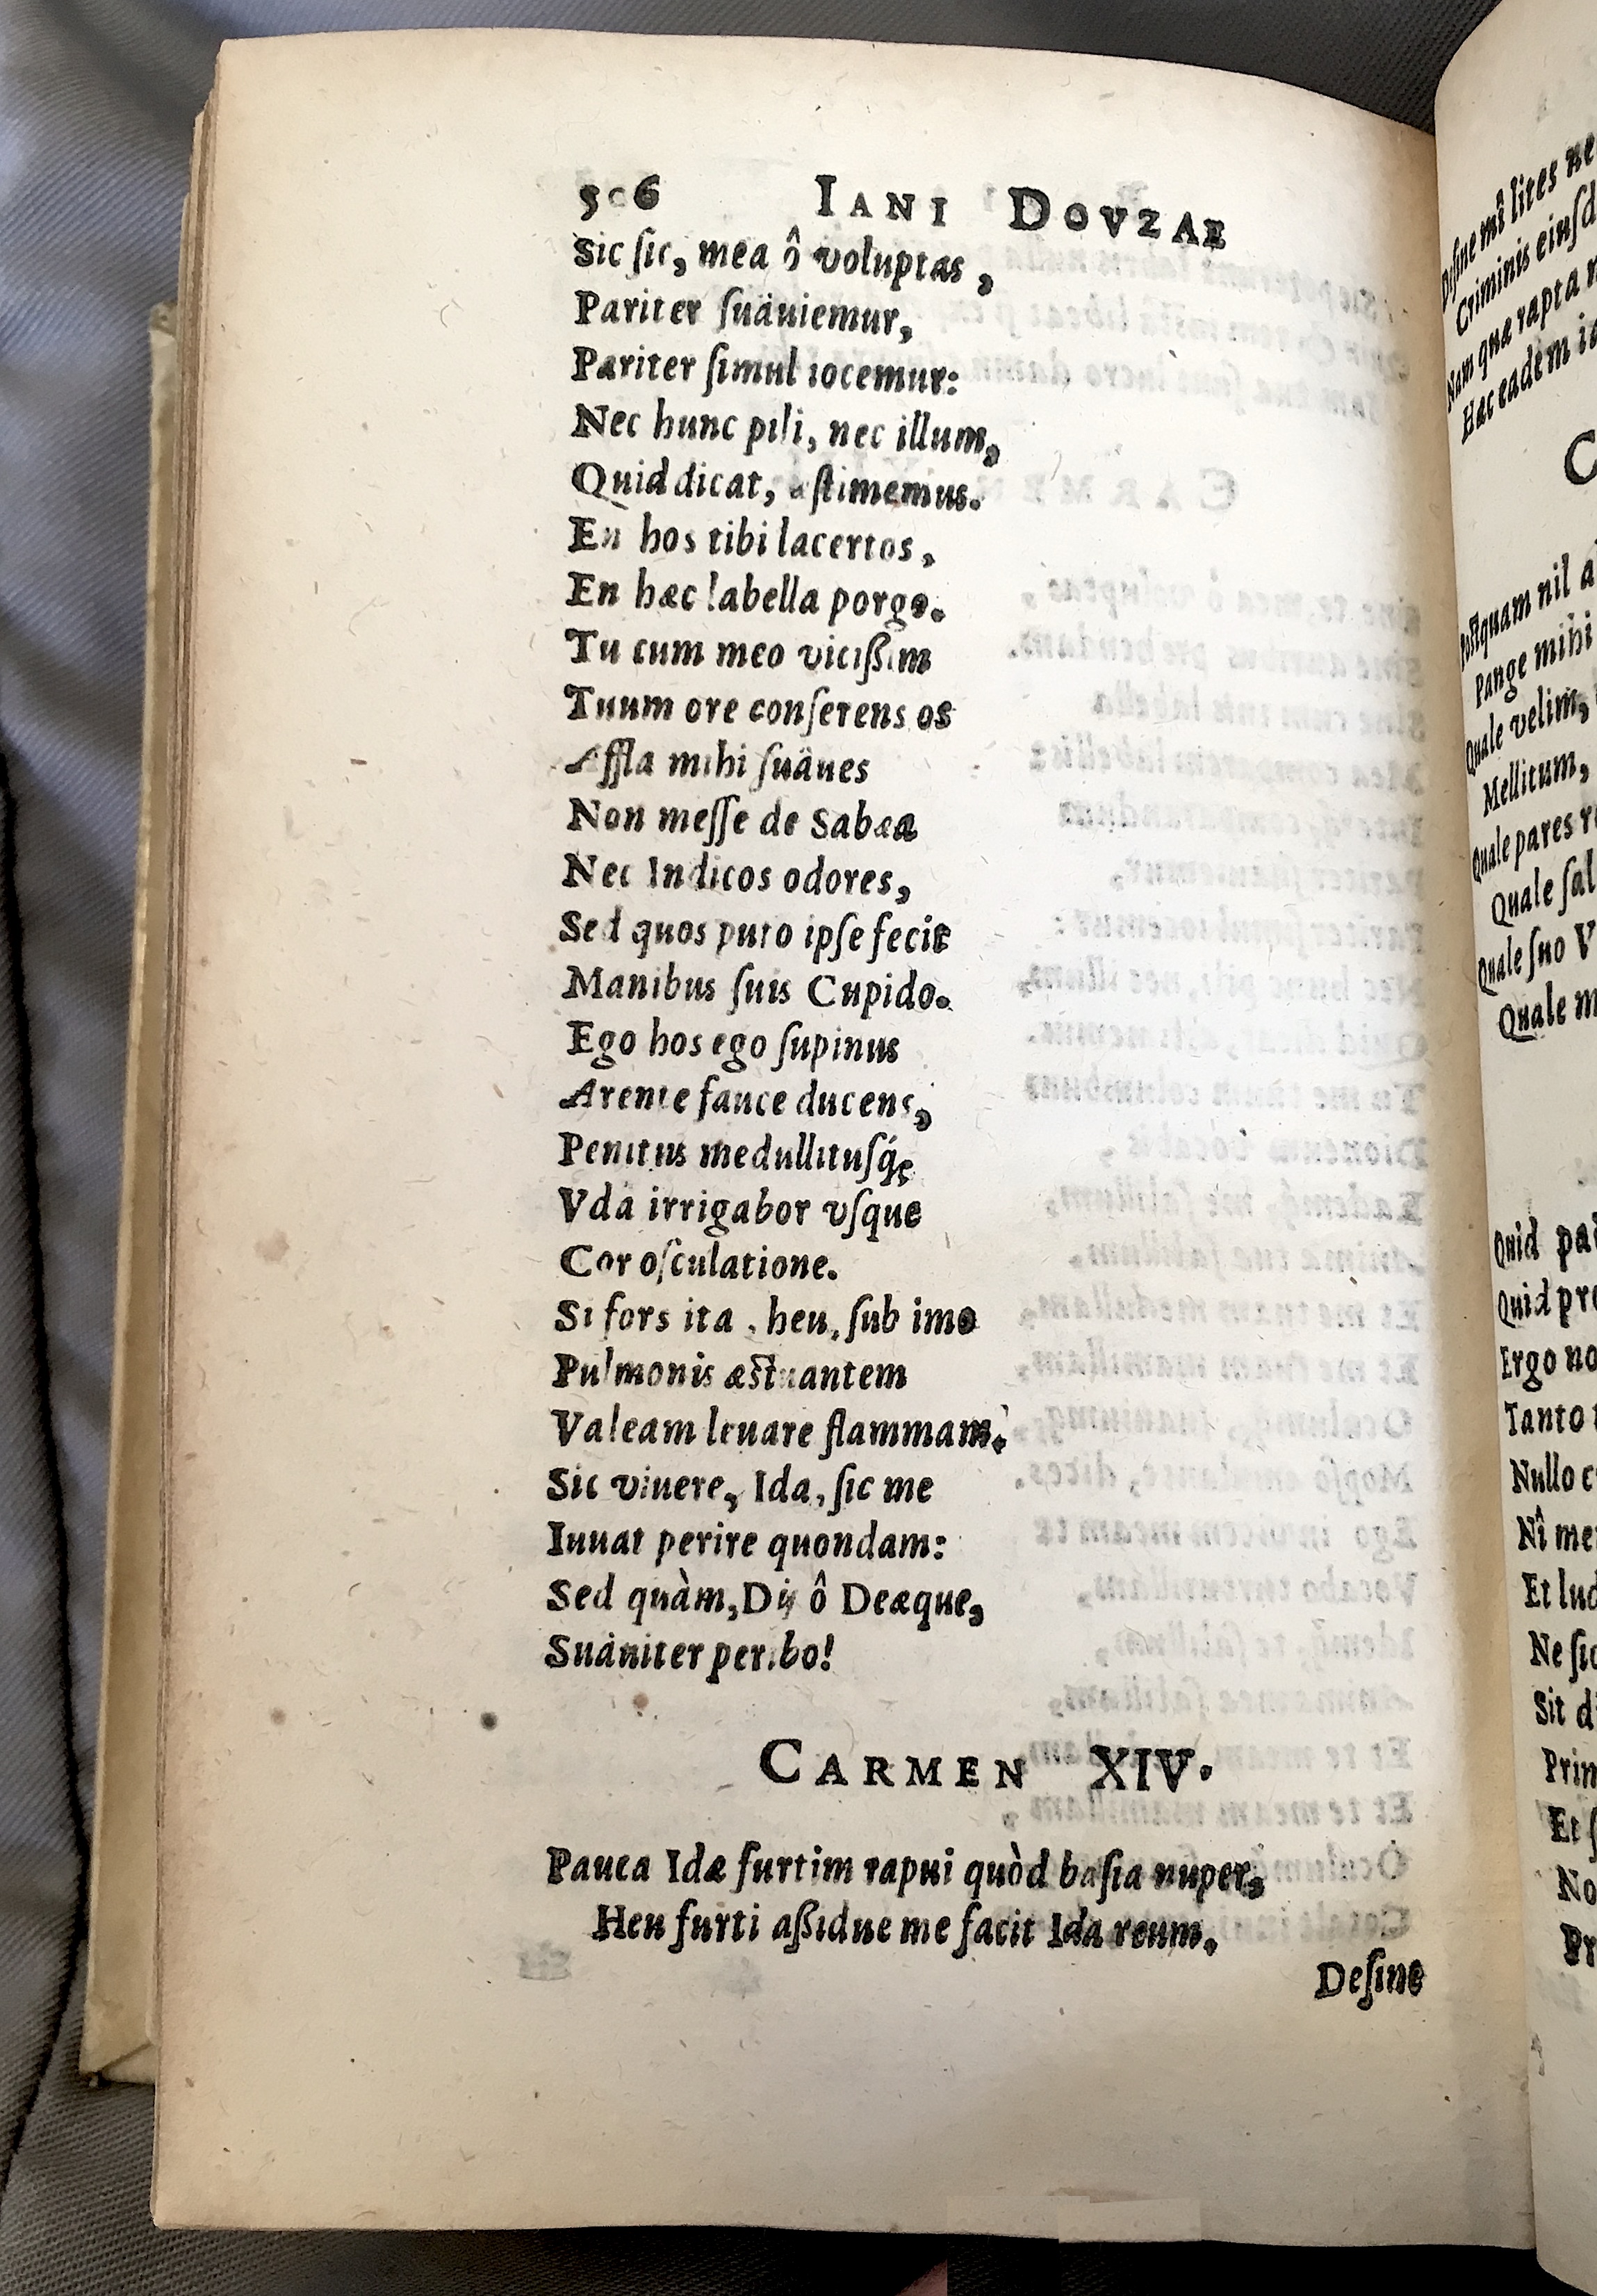 506 IANI DOVZAE
Sic sic, mea ô voluptas,
Pariter suäuiemur,
Pariter simul iocemur:
Nec hunc pili, nec illum,
Quid dicat, æstimemus.
En hos tibi lacertos,
En hæc labella porgo.
Tu cum meo vicißim
Tuum ore conserens os
Affla mihi suäues
Non messe de Sabæa
Nec Indicos odores,
Sed quos puto ipse fecit
Manibus suis Cupido.
Ego hos ego supinus
Arente fauce ducens,
Penitus medullitusq́;
Vda irrigabor vsque
Cor osculatione.
Si fors ita, heu, sub imo
Pulmonis æstuantem
Valeam leuare flammam.
Sic viuere, Ida, sic me
Iuuat perire quondam:
Sed quàm, Dij ô Deæque,
Suäuiter peribo!
CARMEN XIV.
Pauca Idæ furtim rapui quòd basia nuper,
Heu furti aßidue me facit Ida reum.
Desine
Desine mî lites ne
Criminis eiusd
Nam quæ rapta
Hæc eadem
C
Postquam nil
Pange mihi
Quale velim,
Mellitum,
Quale pares
Quale sal
Quale suo V
Quale m
Quid
Quid
Ergo
Tanto
Nullo
Nî
Et
Ne
Sit
Prim
Et
No
Pr